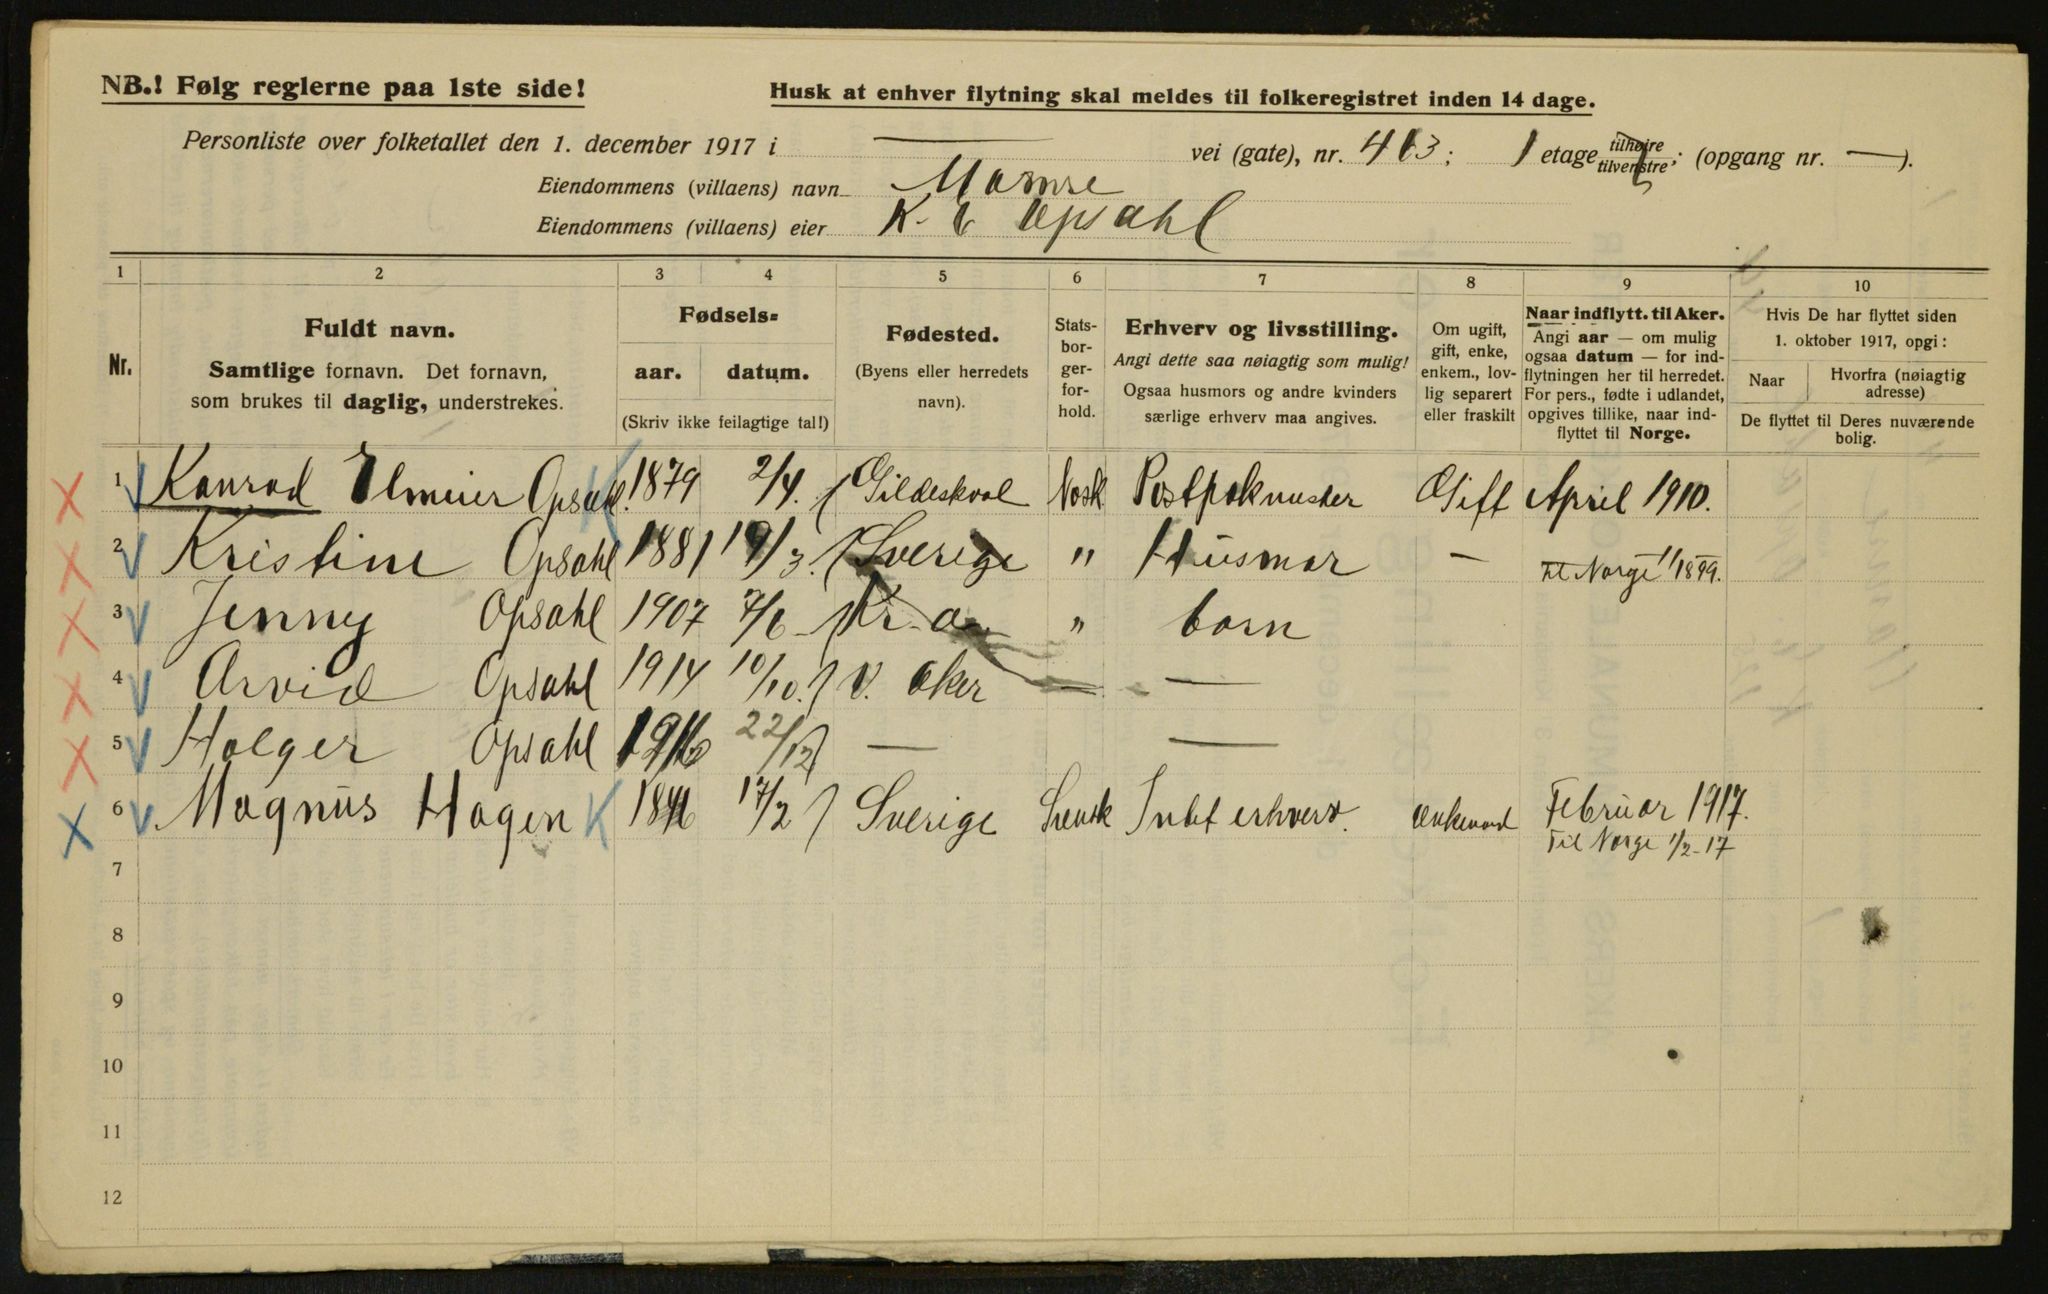 NB.! Følg reglerne paa 1ste side!
Husk at enhver flytning skal meldes til folkeregistret inden 14 dage.
Personliste over folketallet den 1. december 1917 i — vei (gate), nr. 413; 1 etage tilhøire tilvenstre; (opgang nr. —).
Eiendommens (villaens) navn Mamre
Eiendommens (villaens) eier K. E Opsahl
1 2 3 4 5 6 7 8 9 10
Nr.
Fuldt navn.
Samtlige fornavn. Det fornavn,
som brukes til daglig, understrekes.
Fødsels=
aar. datum.
(Skriv ikke feilagtige tal!)
Fødested.
(Byens eller herredets
navn).
Stats-
bor-
ger-
for-
hold.
Erhverv og livsstilling.
Angi dette saa nøiagtig som mulig!
Ogsaa husmors og andre kvinders
særlige erhverv maa angives.
Om ugift,
gift, enke,
enkem., lov-
lig separert
eller fraskilt
Naar indflytt. til Aker.
Angi aar — om mulig
ogsaa datum — for ind-
flytningen her til herredet.
For pers., fødte i udlandet,
opgives tillike, naar ind-
flyttet til Norge.
Hvis De har flyttet siden
1. oktober 1917, opgi:
Naar
Hvorfra (nøiagtig
adresse)
De flyttet til Deres nuværende
bolig.
1 Konrad Elmeier Opsahl. 1879 2/4. Gildeskaal Nosk Postpakmester Gift April 1910.
2 Kristine Opsahl 1881 19/3. Sverige " Husmor — til Norge 1/11899.
3 Jenny Opsahl 1907 7/6 Kr.a. " barn
4 Arvid Opsahl 1914 10/10. V. Aker — —
5 Holger Opsahl 1916 22/12 — —
6 Magnus Hagen K 1846 17/2 Sverige Svensk Intet erhverv. enkemand Februar 1917.
Til Norge 1/2-17
7
8
9
10
11
12